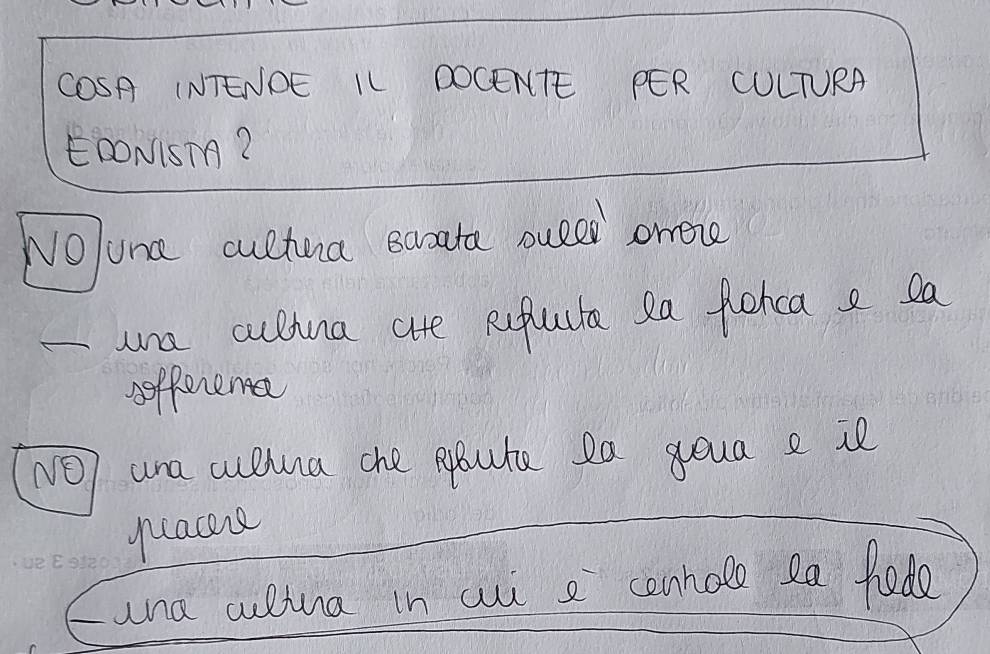 COSA INTENDE IL DOCENTE PER CULTURA
EDONISTA?
NO una cultura basata sull' amore
- una cultura che rifiuta la fatica e la
sofferenza
NO una cultura che rifiuta la gioia e il
piacere
- una cultura in cui è centrale la fede